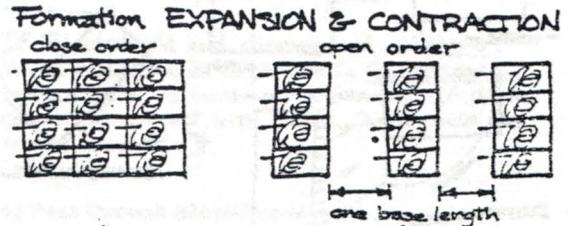 Formation EXPANSION & CONTRACTION
close order
open order
one base length